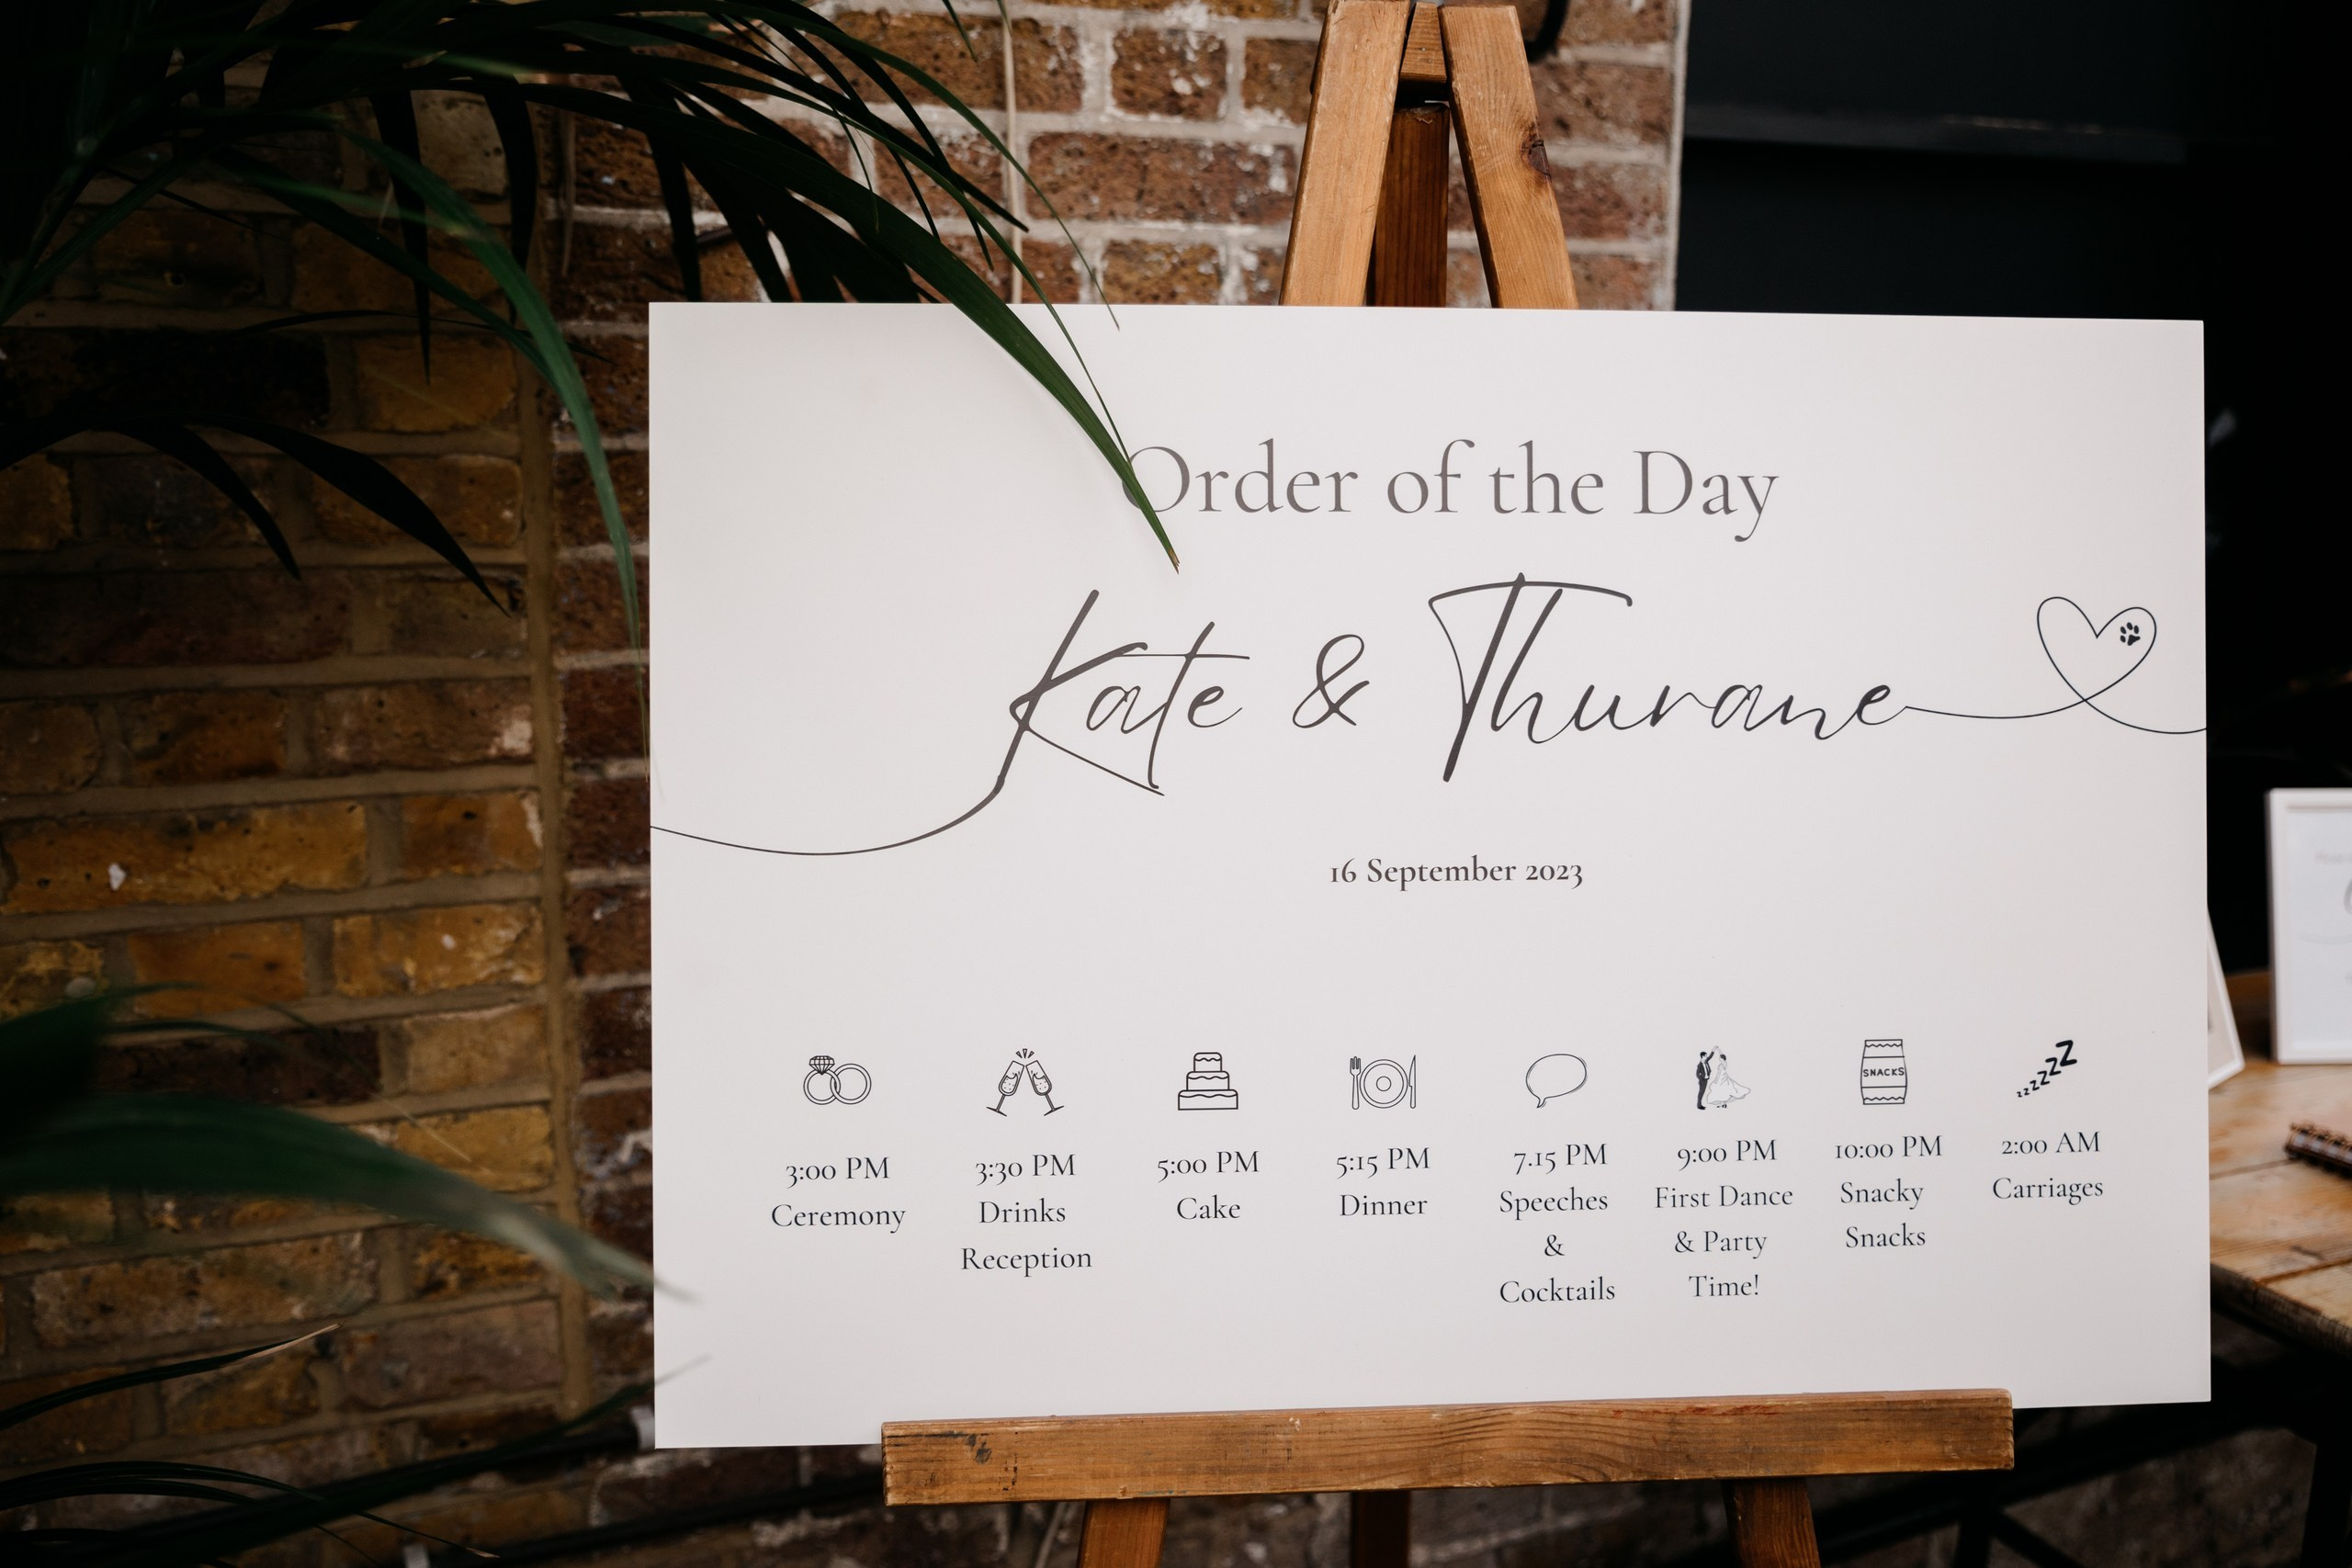 Order of the Day
Kate & Thurane
16 September 2023
SNACKS
zzzzZZ
3:00 PM
Ceremony
3:30 PM
Drinks
Reception
5:00 PM
Cake
5:15 PM
Dinner
7.15 PM
Speeches
&
Cocktails
9:00 PM
First Dance
& Party
Time!
10:00 PM
Snacky
Snacks
2:00 AM
Carriages